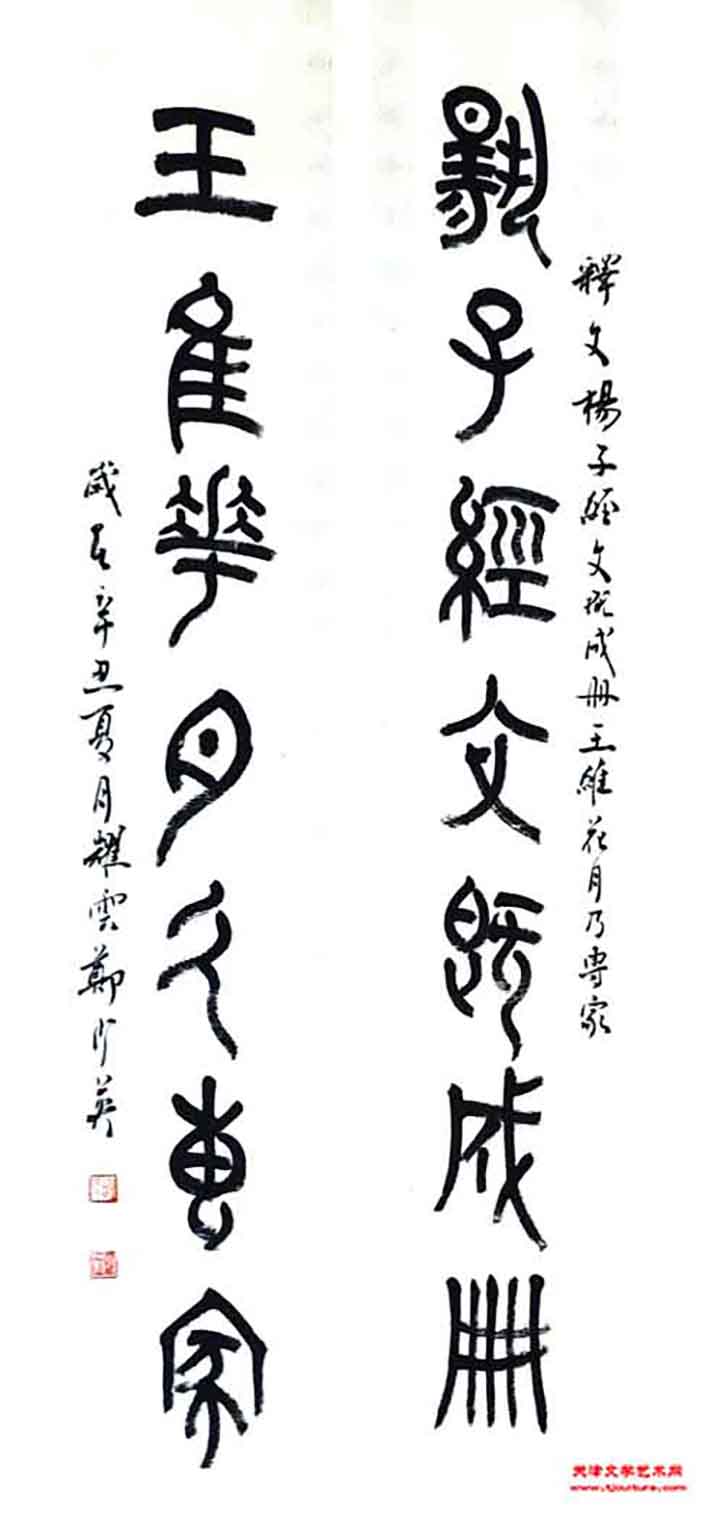 釋文楊子經文既成冊王維花月乃專家
楊子經文既成冊
王隹華月乃專家
歲在辛丑夏月耀雲鄭少英
天津文学艺术网
www.tjculture.com